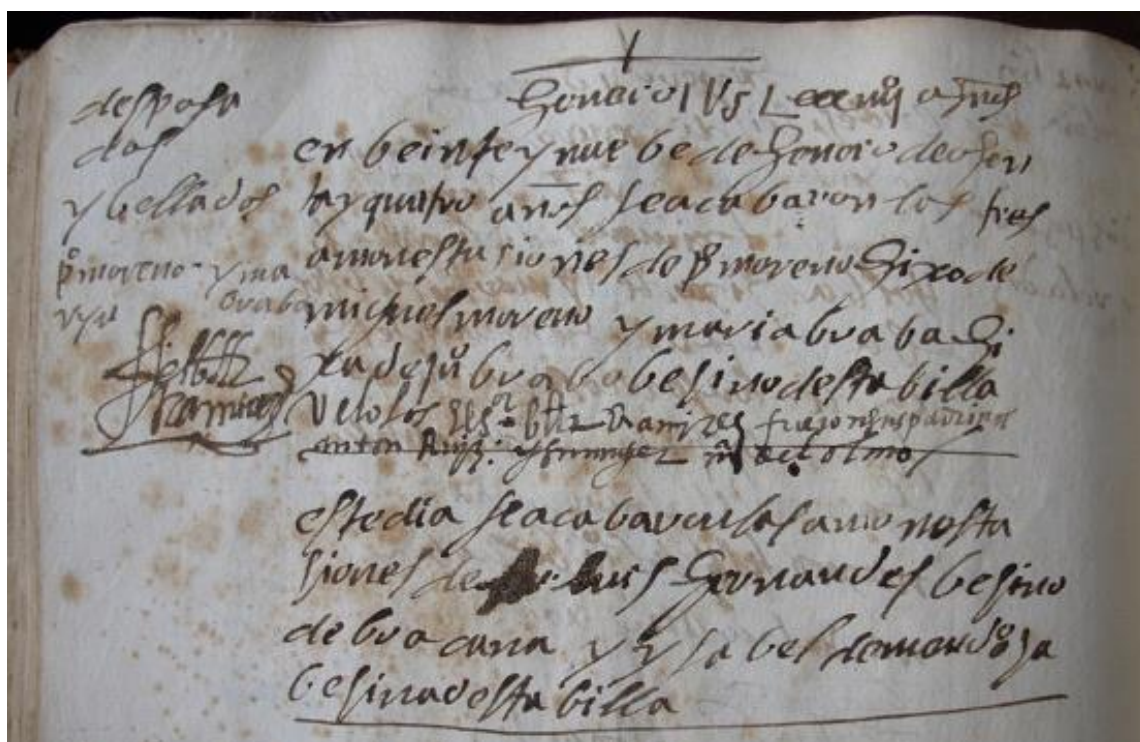 henero IVs Lxxxiiijº años
desposa
dos
y bellados
pº moreno y ma
ria braba
Ramirez
en beinte y nuebe de henero de ochen
ta y quatro años se acabaron las tres
amonestasiones de pº moreno hixo de
miguel moreno y maria braba hi
xa de juº brabo besino desta billa
velolos el sºr bllr Ramirez fueron sus padrinos
anton Ruiz y su muger mª del olmo
este dia se acabaron las amonesta
siones de luis hernandes besino
de bra cana y ysabel de mendoza
besina desta billa